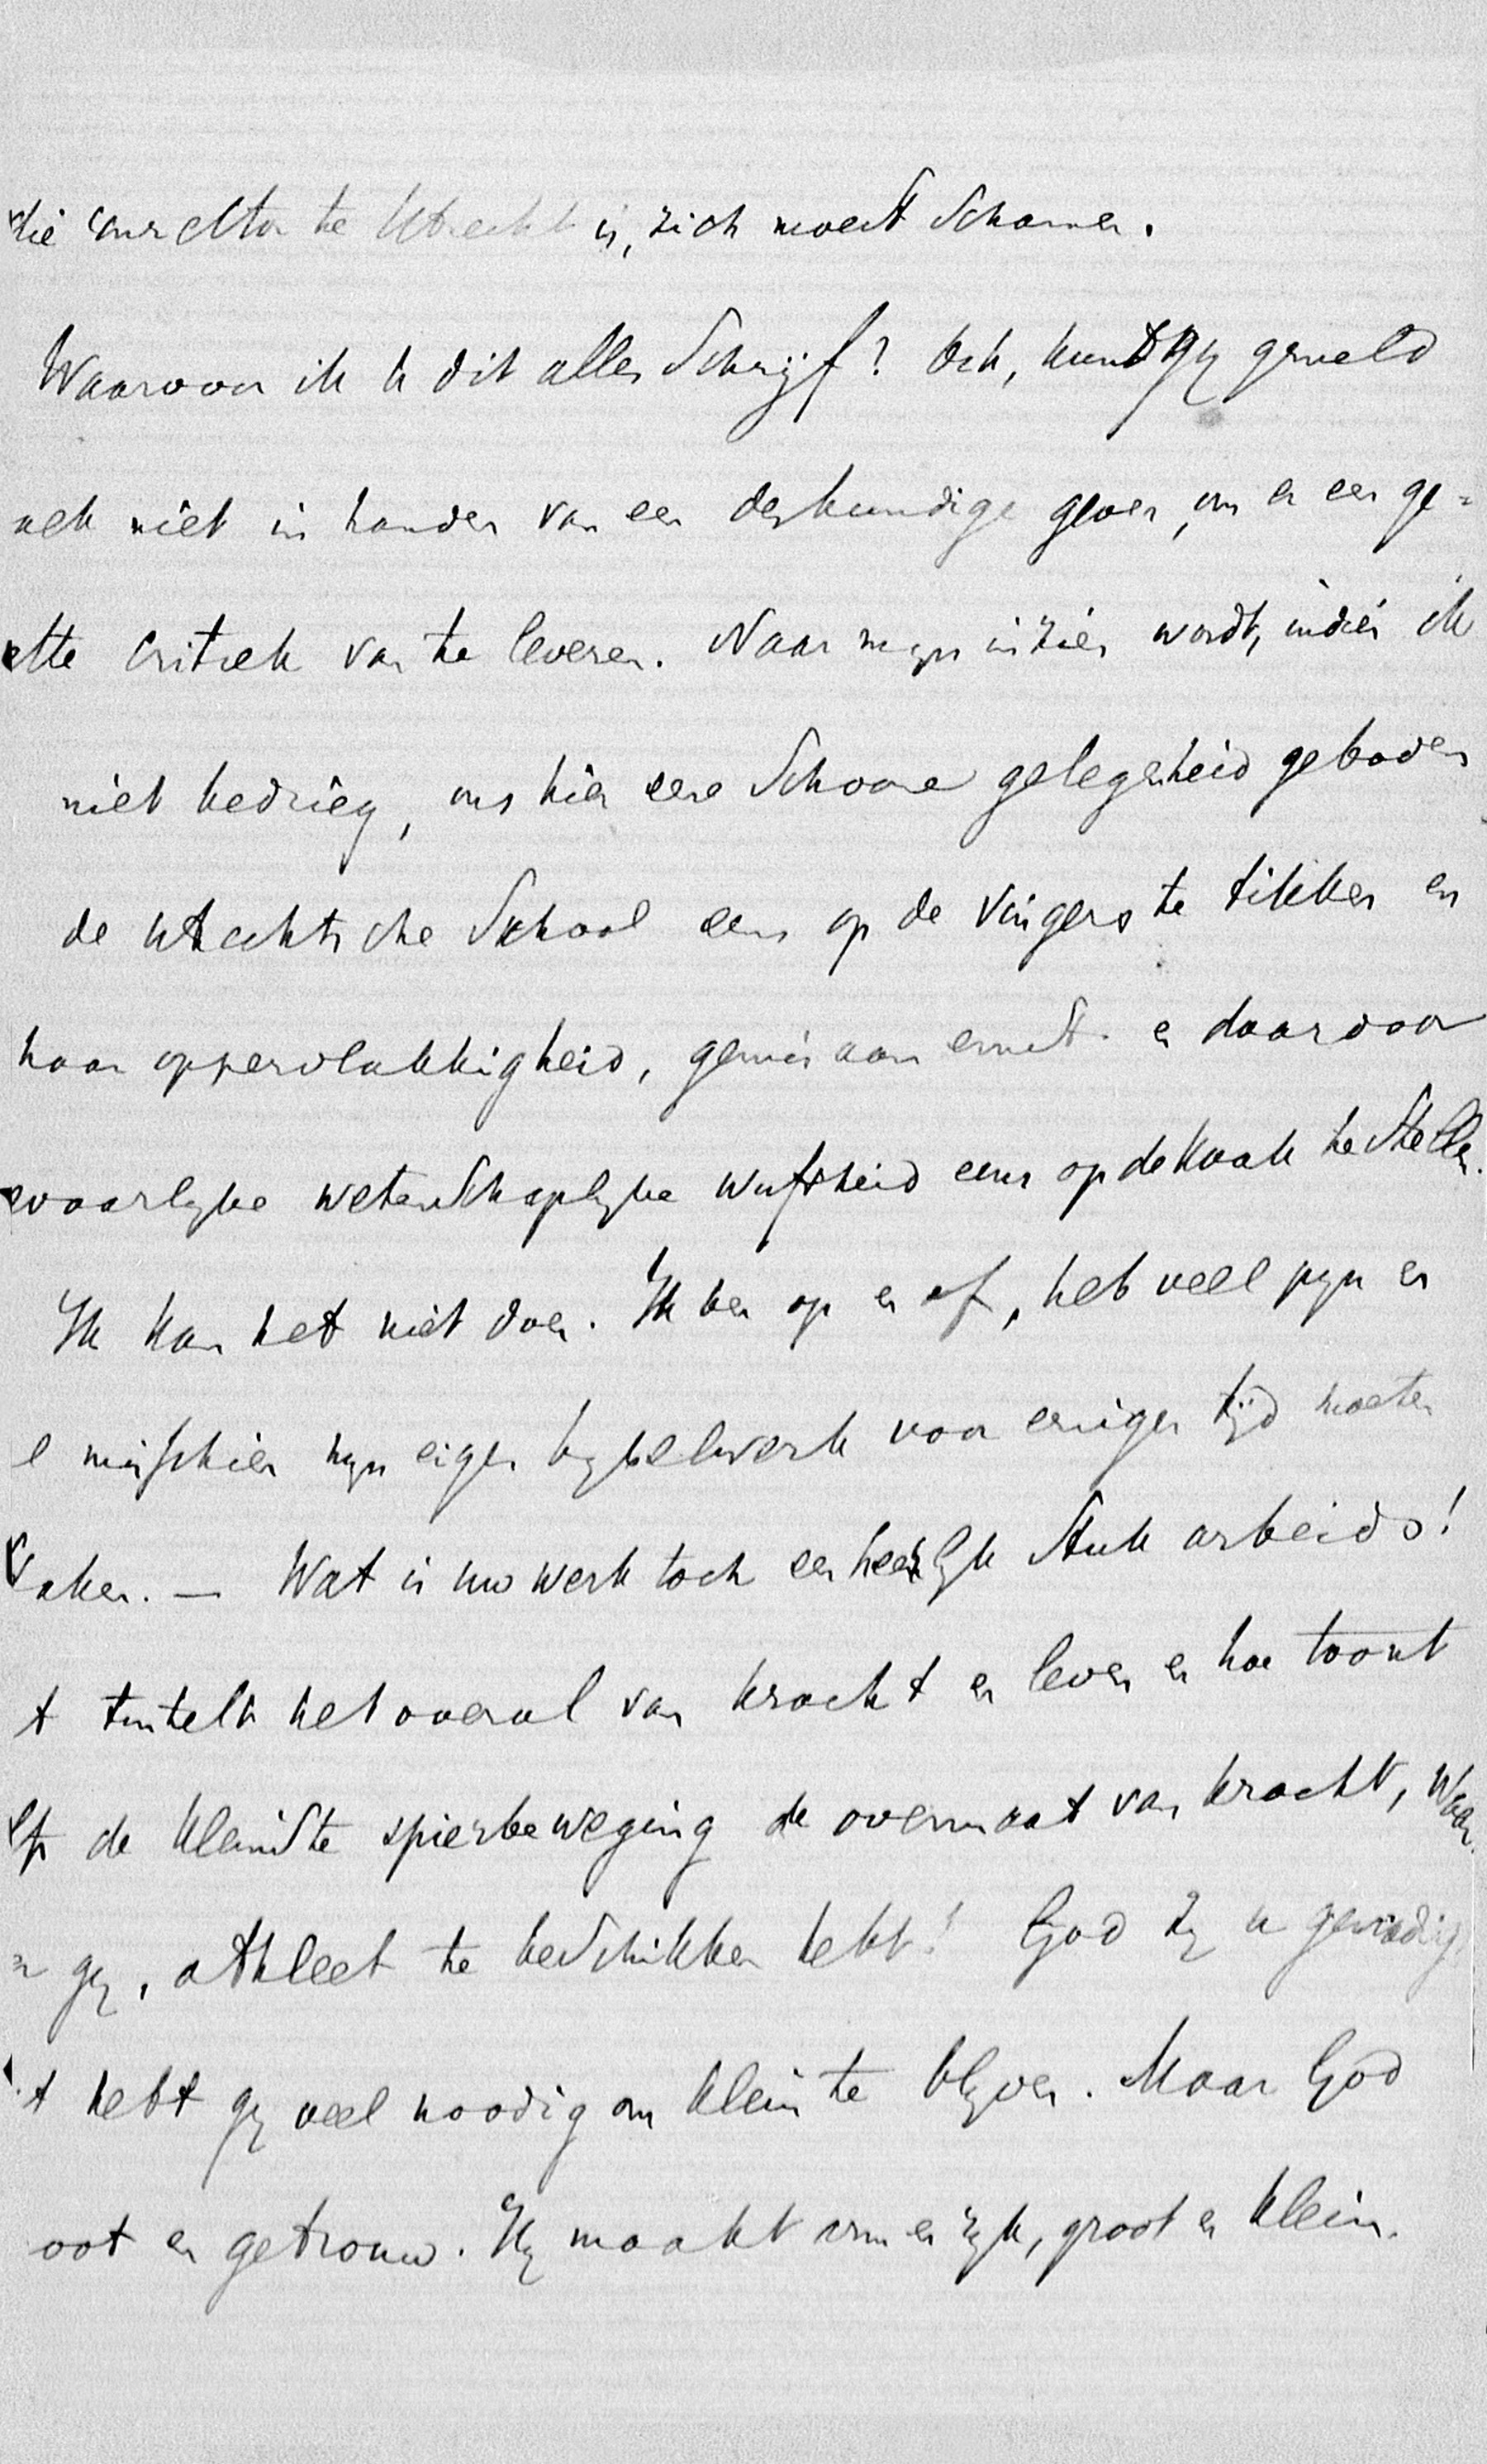 die conrector te Utrecht is, zich moest schamen.
Waarvoor ik u dit alles schrijf? Och, kundt gij gemeld
niet in handen van een deskundige geven, om er een ge=
critiek van te leveren. Naar mijn inzien wordt, indien ik
niet bedrieg, ons hier eene schoone gelegenheid geboden
de Utrechtsche School eens op de vingers te tikken en
haar oppervlakkigheid, gemis aan ernst en daardoor
evaarlijke wetenschaplijke wufheid eens op de kaak te stellen.
Ik kan het niet doen. Ik ben op en af, heb veel pijn en
l misschien mijn eigen bijbelwerk voor eenigen tijd moeten
aken. — Wat is uw werk toch een heerlijk stuk arbeids!
t tintelt het overal van kracht en leven en hoe toont
de kleinste spierbeweging de overmaat van kracht, waar
gij, athleet te beschikken hebt! God zij u genadig
t hebt gij veel noodig om klein te blijven. Maar God
oot en getrouw. Hij maakt arm en rijk, groot en klein.